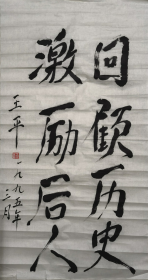 回顾历史
激励后人
王平
一九九五年
三月